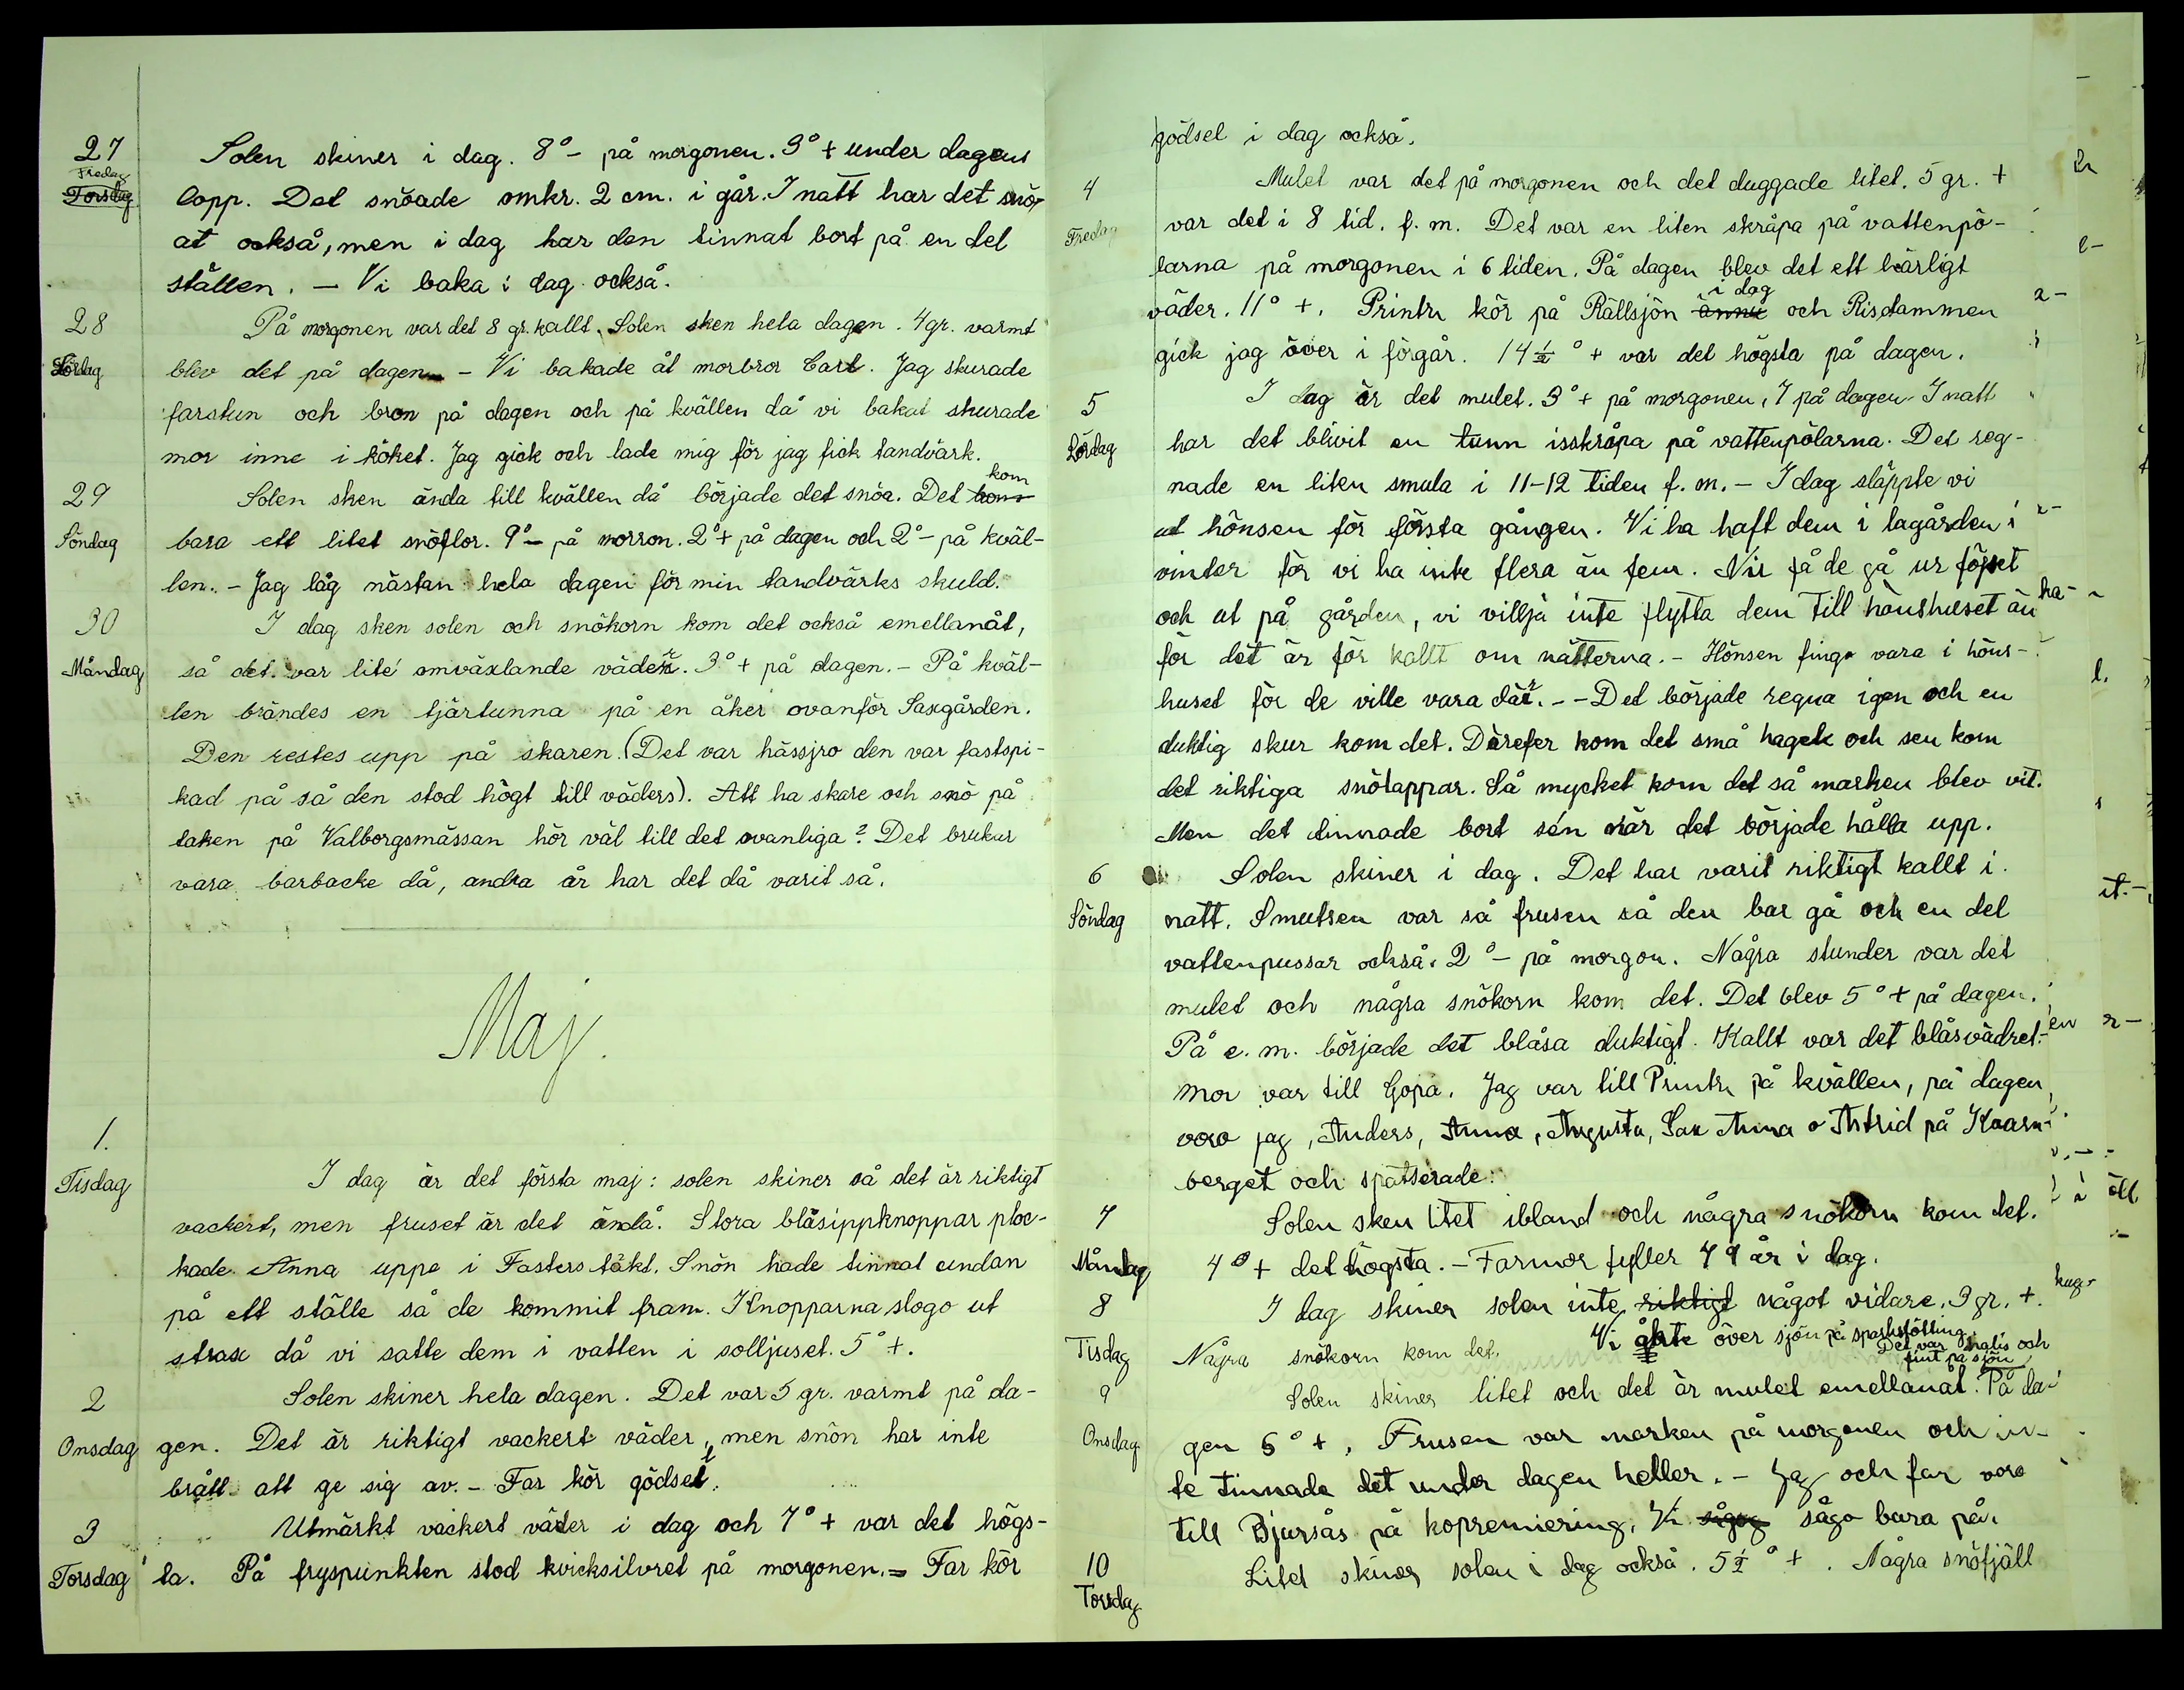 27 Solen skiner i dag. 8° – på morgonen. 3° + under dagens
Fredag
Torsdag lopp. Det snöade omkr. 2 cm. i går. I natt har det snö-
at också, men i dag har den tinnat bort på en del
ställen. – Vi baka i dag också.
28 På morgonen var det 8 gr. kallt. Solen sken hela dagen. 4 gr. varmt
Lördag blev det på dagen. – Vi bakade åt morbror Carl. Jag skurade
farstun och bron på dagen och på kvällen då vi bakat skurade
mor inne i köket. Jag gick och lade mig för jag fick tandvärk.
kom
29 Solen sken ända till kvällen då började det snöa. Det kom
Söndag bara ett litet snöflor. 9° – på morron. 2° + på dagen och 2° – på kväl-
len. – Jag låg nästan hela dagen för min tandvärks skuld.
30 I dag sken solen och snökorn kom det också emellanåt,
Måndag så det var lite omväxlande väder. 3° + på dagen. – På kväl-
len brändes en tjärtunna på en åker ovanför Saxgården.
Den restes upp på skaren. (Det var hässjro den var fastspi-
kad på så den stod högt till väders). Att ha skare och snö på
taken på Valborgsmässan hör väl till det ovanliga? Det brukar
vara barbacke då, andra år har det då varit så.
Maj.
1. Tisdag I dag är det första maj: solen skiner så det är riktigt
vackert, men fruset är det ändå. Stora blåsippknoppar ploc-
kade Anna uppe i Fasters täkt. Snön hade tinnat undan
på ett ställe så de kommit fram. Knopparna slogo ut
strax då vi satte dem i vatten i solljuset. 5° +.
2 Solen skiner hela dagen. Det var 5 gr. varmt på da-
Onsdag gen. Det är riktigt vackert väder, men snön har inte
brått att ge sig av. – Far kör gödsel.
3 Utmärkt vackert väder i dag och 7° + var det högs-
Torsdag ta. På fryspunkten stod kvicksilvret på morgonen. = Far kör
gödsel i dag också.
4 Mulet var det på morgonen och det duggade litet. 5 gr. +
Fredag var det i 8 tid. f. m. Det var en liten skråpa på vattenpö-
larna på morgonen i 6 tiden. På dagen blev det ett härligt
i dag
väder. 11° +. Printz kör på Rällsjön ännu och Risdammen
gick jag över i förgår. 14 ½ ° + var det högsta på dagen.
5 I dag är det mulet. 3° + på morgonen, 7 på dagen. I natt
Lördag har det blivit en tunn isskråpa på vattenpölarna. Det reg-
nade en liten smula i 11–12 tiden f. m. – I dag släppte vi
ut hönsen för första gången. Vi ha haft dem i lagården i
vinter för vi ha inte flera än fem. Nu få de gå ur föjset
och ut på gården, vi villja inte flytta dem till hönshuset än
för det är för kallt om nätterna. – Hönsen fingo vara i höns-
huset för de ville vara där. – – Det började regna igen och en
duktig skur kom det. Därefer kom det små hagel och sen kom
det riktiga snötappar. Så mycket kom det så marken blev vit.
Men det tinnade bort sén när det började hålla upp.
6 Solen skiner i dag. Det har varit riktigt kallt i
Söndag natt. Smutsen var så frusen så den bar gå och en del
vattenpussar också. 2° – på morgon. Några stunder var det
mulet och några snökorn kom det. Det blev 5° + på dagen.
På e. m. började det blåsa duktigt. Kallt var det blåsvädret.
mor var till Gopa. Jag var till Printz på kvällen, på dagen
voro jag, Anders, Anna, Augusta, Sax Anna o Astrid på Kvarn-
berget och spatserade.
7 Solen sken litet ibland och några snökorn kom det.
Måndag 4° + det högsta. – Farmor fyller 79 år i dag.
8 I dag skiner solen inte riktigt något vidare. 3 gr. +.
Tisdag Några snökorn kom det. Vi åkte över sjön på sparkstötting.
Det var halis och
fint på sjön
9 Solen skiner litet och det är mulet emellanåt. På da-
Onsdag gen 6° +. Frusen var marken på morgonen och in-
te tinnade det under dagen heller. – Jag och far voro
till Bjursås på kopremiering. Vi sågog sågo bara på.
10 Litet skiner solen i dag också. 5 ½ ° +. Några snöfjäll
Torsdag